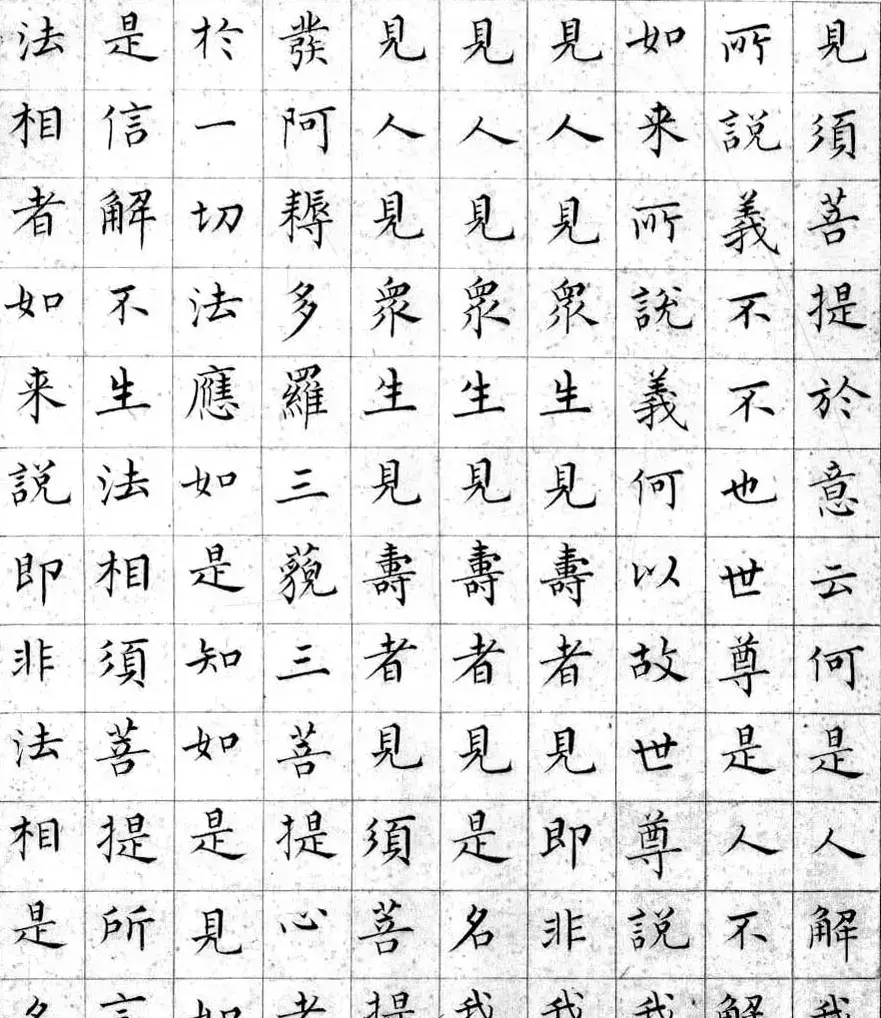 見須菩提於意云何是人解我
所說義不不也世尊是人不解
如来所說義何以故世尊說我
見人見衆生見壽者見即非我
見人見衆生見壽者見是名我
見人見衆生見壽者見須菩提
發阿耨多羅三藐三菩提心者
於一切法應如是知如是見如
是信解不生法相須菩提所言
法相者如来說即非法相是名